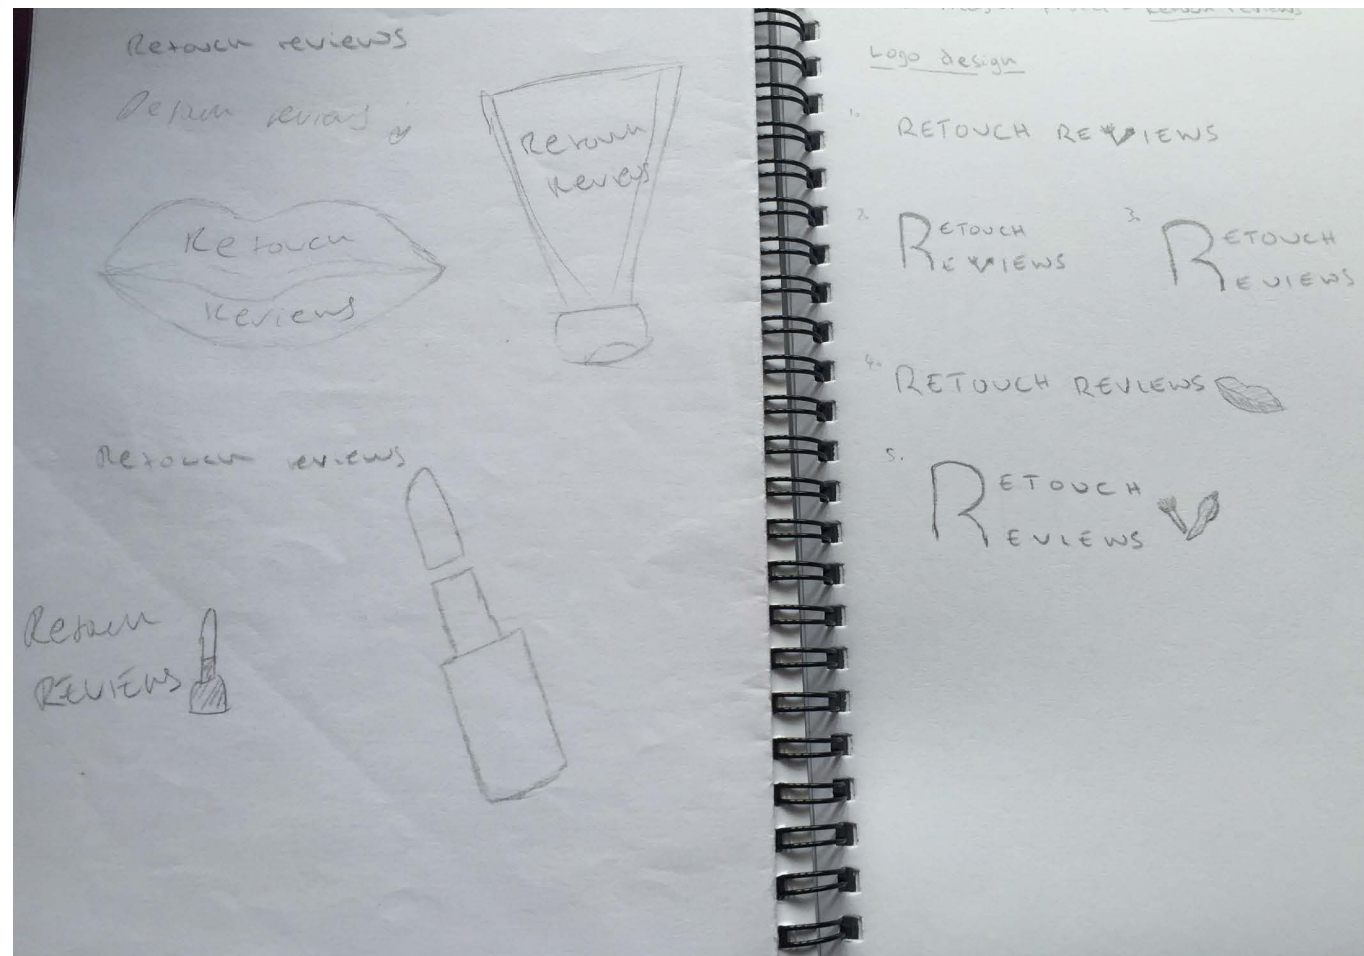 Retouch reviews
reviews
Retouch
Reviews
Retouch
Reviews
Retouch reviews
Retouch
REVIEWS
Retouch reviews
Logo design
1.
RETOUCH REVIEWS
2.
RETOUCH
REVIEWS
3.
RETOUCH
REVIEWS
4.
RETOUCH REVIEWS
5.
RETOUCH
REVIEWS